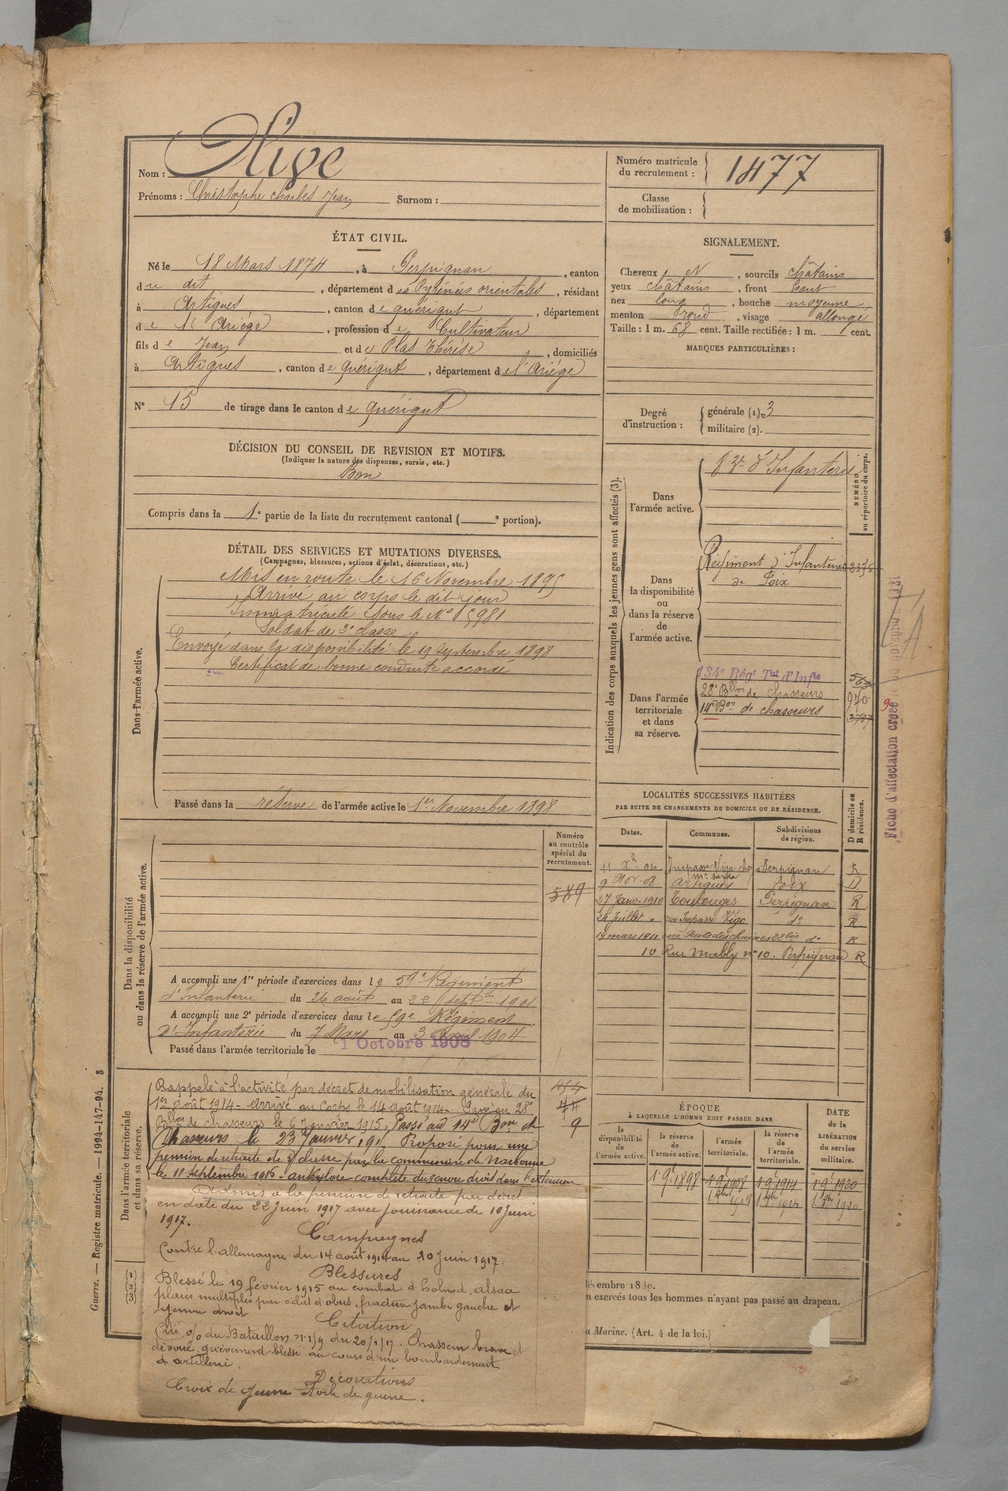 Nom : Olive
Prénoms : Christophe Charles Jean Surnom :
Numéro matricule du recrutement : 1477
Classe de mobilisation :
ÉTAT CIVIL.
Né le 18 Mars 1874, à Perpignan, canton
du dit, département des Pyrénées orientales, résidant
à Artigues, canton de quérigut, département
de l'Ariège, profession de Cultivateur
fils de Jean et de Plas Thérèse, domiciliés
à Artigues, canton de quérigut, département de l'Ariège
N° 15 de tirage dans le canton de quérigut
SIGNALEMENT.
Cheveux N, sourcils châtains
yeux châtains, front haut
nez long, bouche moyenne
menton rond, visage allongé
Taille : 1 m. 68 cent. Taille rectifiée : 1 m. cent.
MARQUES PARTICULIÈRES :
Degré d'instruction : générale (1) 3
militaire (2).
DÉCISION DU CONSEIL DE REVISION ET MOTIFS.
(Indiquer la nature des dispenses, sursis, etc.)
Bon
Compris dans la 1e partie de la liste du recrutement cantonal ( e portion).
DÉTAIL DES SERVICES ET MUTATIONS DIVERSES.
(Campagnes, blessures, actions d'éclat, décorations, etc.)
Dans l'armée active.
Mis en route le 16 Novembre 1895
Arrivé au corps le dit jour
Immatriculé sous le N° 5981
Soldat de 2e classe
Envoyé dans la disponibilité le 19 septembre 1898
Certificat de bonne conduite accordé
Passé dans la réserve de l'armée active le 1er Novembre 1898
Indication des corps auxquels les jeunes gens sont affectés (3).
NUMÉRO au répertoire du corps.
Dans l'armée active.
d'Infanterie
Dans la disponibilité ou dans la réserve de l'armée active.
Régiment d'Infanterie
de Foix
Dans l'armée territoriale et dans sa réserve.
134e Régt Tal d'Infie
28e Bllon de Chasseurs
14e Bon de chasseurs
Fiche d'affectation créée
LOCALITÉS SUCCESSIVES HABITÉES
PAR SUITE DE CHANGEMENTS DE DOMICILE OU DE RÉSIDENCE.
Dates. Communes. Subdivisions de région. D domicile ou R résidence.
Perpignan R
9 Nov. 08 Artigues Foix D
27 Janv. 1910 Toulouges Perpignan R
Impasse Vigo do R
R
10 Rue Mailly n° 10. Perpignan R
Dans la disponibilité ou dans la réserve de l'armée active.
Numéro au contrôle spécial du recrutement.
589
A accompli une 1re période d'exercices dans le 59e Régiment
d'Infanterie du 26 août au 22 sept. 1901
A accompli une 2e période d'exercices dans le 59e Régiment
D'Infanterie du 7 Mars au 3 Avril 1904
Passé dans l'armée territoriale le 1 Octobre 1908
Dans l'armée territoriale et dans sa réserve.
Rappelé à l'activité par décret de mobilisation générale du
1er août 1914 - Arrivé au Corps le 14 août 1914 - Passé au 28e
Bllon de chasseurs le 6 janvier 1915, Passé au 14e Bon de
Chasseurs le 23 Janvier 191 Proposé pour une
pension de retraite de classe par la commission de Narbonne
le 11 septembre 1916 - ankylose complète du genou droit dans l'extension
Admis à la pension de retraite par décret
en date du 22 juin 1917 avec jouissance de 10 Juin
1917.
Campagnes
Contre l'allemagne du 14 août 1914 au 10 Juin 1917.
Blessures
Blessé le 19 février 1915 au combat d alsace
plaies multiples par éclat d'obus, fracture jambe gauche et
genou droit
Citation
Cité o/ du Bataillon n° 1/9 du 20/1/17. Chasseur brave et
dévoué, grièvement blessé au cours d'un bombardement
d'artillerie.
Décorations
Croix de guerre étoile de guerre.
ÉPOQUE
À LAQUELLE L'HOMME DOIT PASSER DANS
DATE DE LA LIBÉRATION du service militaire.
la disponibilité de l'armée active. la réserve de l'armée active. l'armée territoriale. la réserve de l'armée territoriale.
1 9 1898 1 9 1908 1 9 1914 1 9 1920
décembre 1830.
n exercés tous les hommes n'ayant pas passé au drapeau.
a Marine. (Art. 4 de la loi.)
Guerre. — Registre matricule. — 1994-147-94. 5